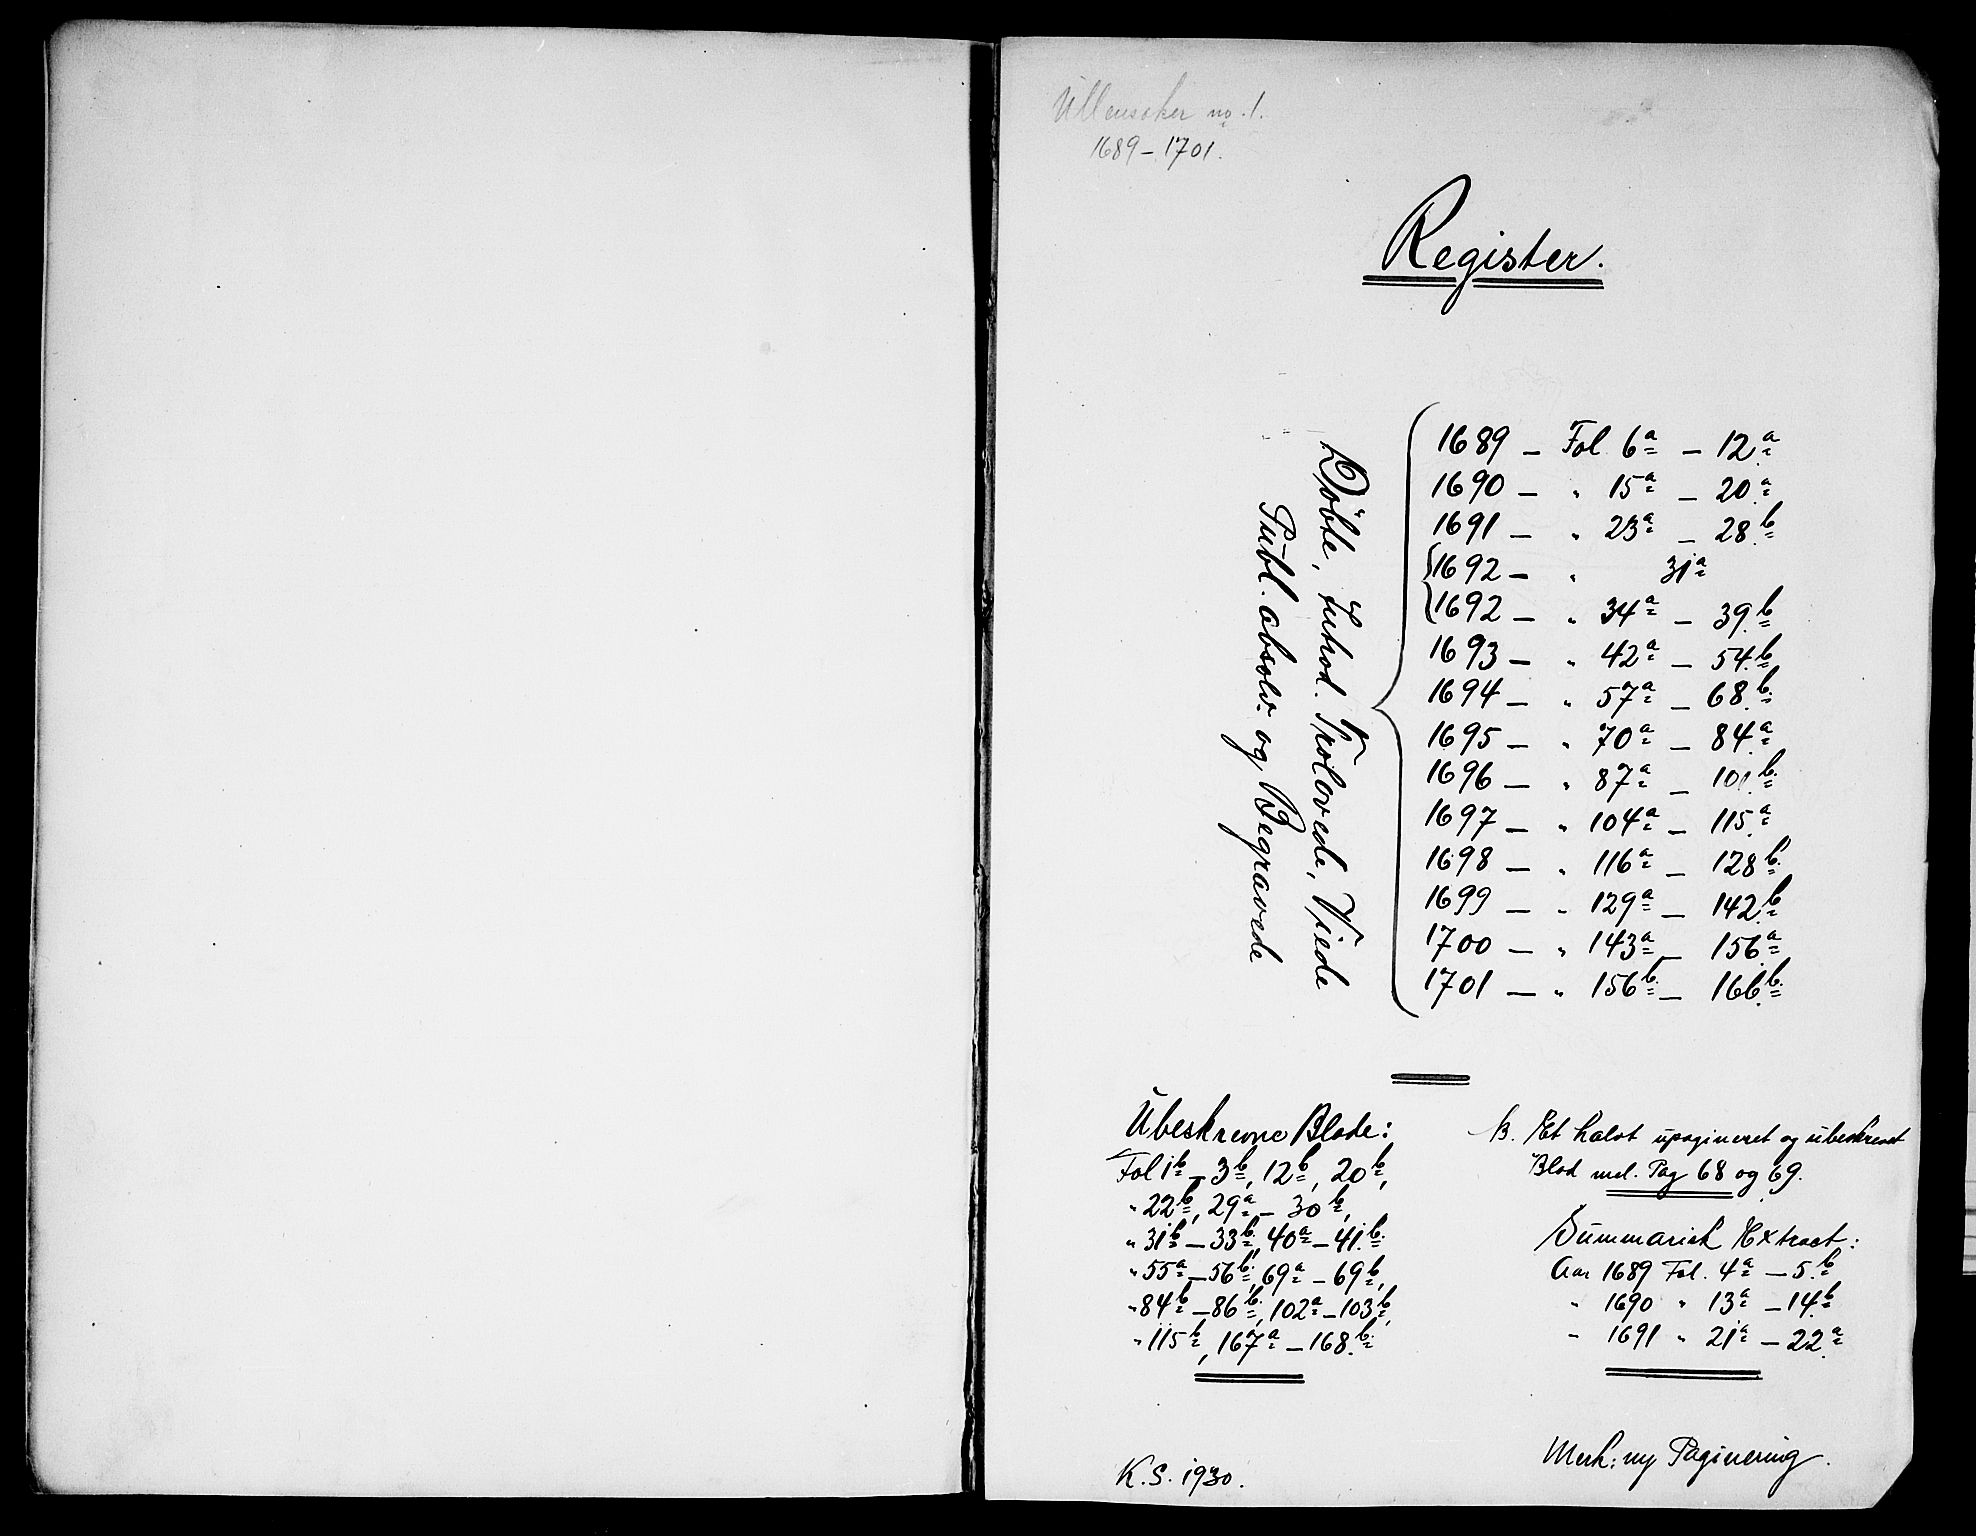 Ullensaker no. 1.
1689 – 1701.
Register.
Döbte, Introd. Trolovede, Viede
Publ. absolv. og Begravede
1689 – Fol. 6a – 12a
1690 – " 15a – 20a
1691 – " 23a – 28b
1692 – " 31a
1692 – " 34a – 39b
1693 – " 42a – 54b
1694 – " 57a – 68b
1695 – " 70a – 84a
1696 – " 87a – 101b
1697 – " 104a – 115a
1698 – " 116a – 128b
1699 – " 129a – 142b
1700 – " 143a – 156a
1701 – " 156b – 166b
Ubeskrevne Blade:
Fol 1b – 3b, 12b, 20b,
" 22b, 29a – 30b,
" 31b – 33b, 40a – 41b
" 55a – 56b, 69a – 69b,
" 84b – 86b, 102a – 103b,
" 115b, 167a – 168b
B. Et halvt upagineret og ubeskrevet
Blad mel. Pag 68 og 69.
Summarisk Extract:
Aar 1689 Fol. 4a – 5b
" 1690 " 13a – 14b
" 1691 " 21a – 22a
K.S. 1930.
Merk: ny Paginering.